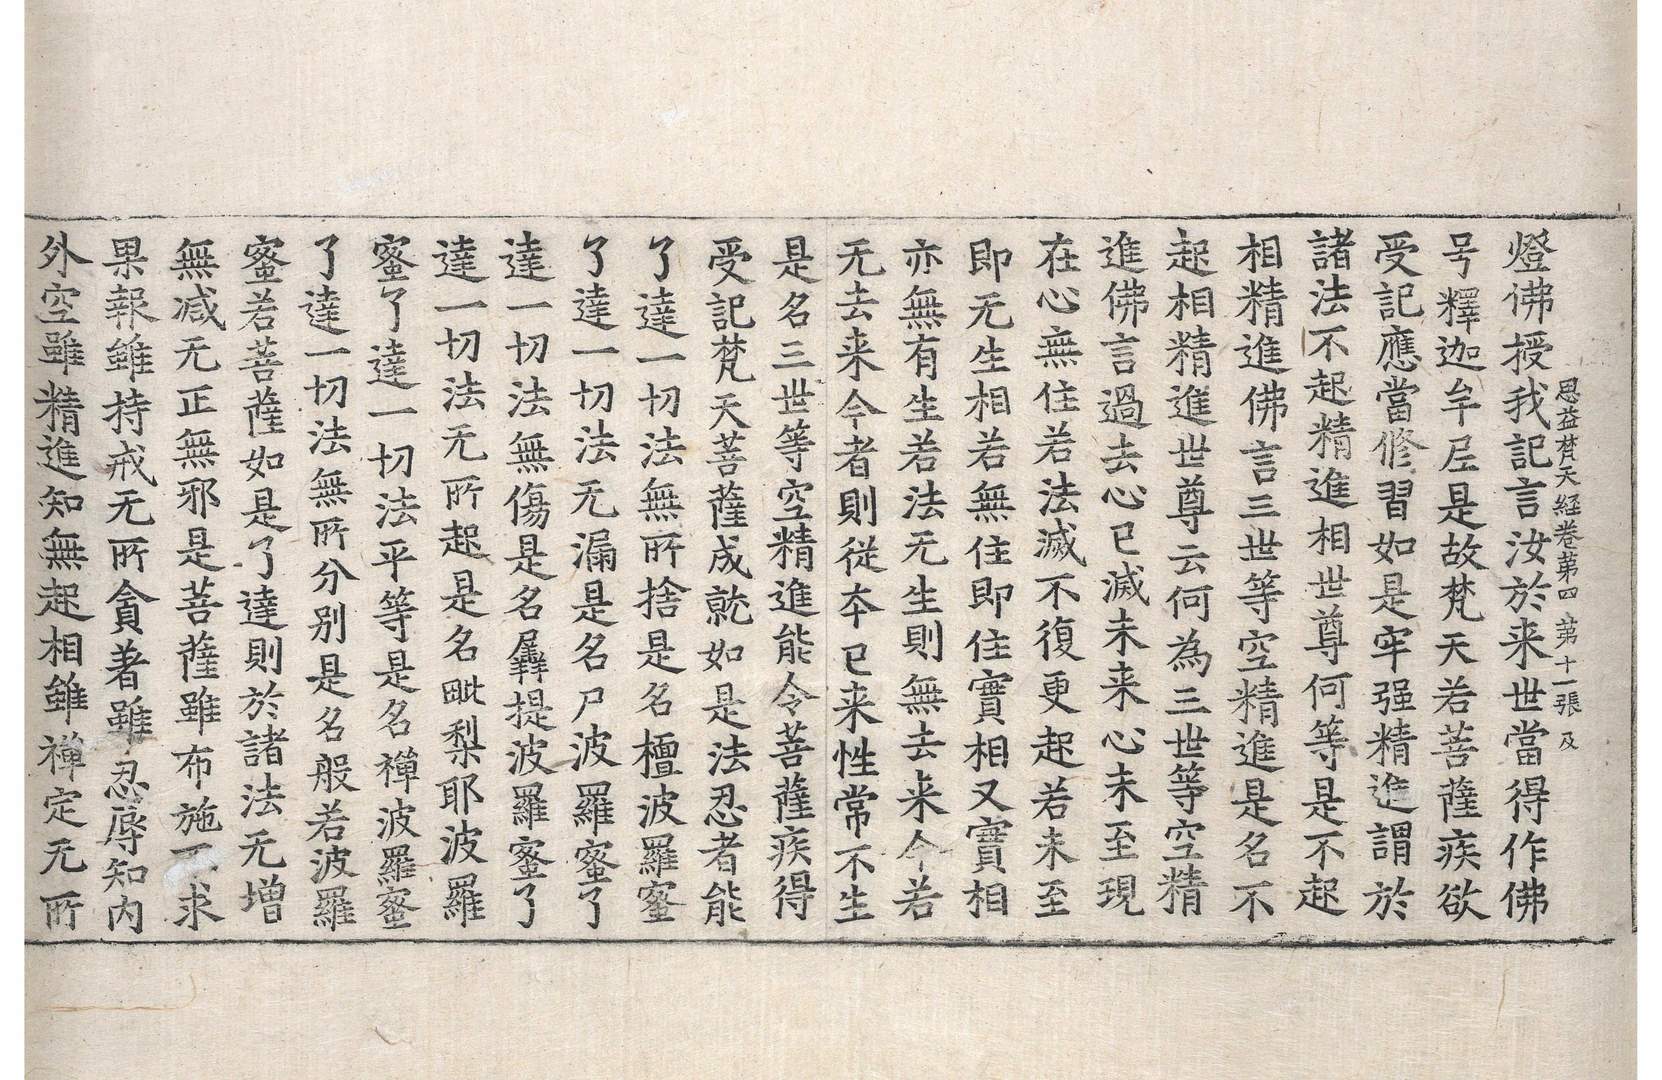 燈佛授我記言汝於来世當得作佛
思益梵天経卷苐四 苐十一張 及
号釋迦牟𡰱是故梵天若菩薩疾欲
受記應當修習如是牢强精進謂於
諸法不起精進相世尊何等是不起
相精進佛言三世等空精進是名不
起相精進世尊云何為三世等空精
進佛言過去心已滅未来心未至現
在心無住若法滅不復更起若未至
即无生相若無住即住實相又實相
亦無有生若法无生則無去来今若
无去来今者則従夲已来性常不生
是名三世等空精進能令菩薩疾得
受記梵天菩薩成就如是法忍者能
了達一切法無所捨是名檀波羅蜜
了達一切法无漏是名尸波羅蜜了
達一切法無傷是名羼提波羅蜜了
達一切法无所起是名毗梨耶波羅
蜜了達一切法平等是名禪波羅蜜
了達一切法無所分别是名般若波羅
蜜若菩薩如是了達則於諸法无增
無减无正無邪是菩薩雖布施不求
果報雖持戒无所貪著雖忍辱知内
外空雖精進知無起相雖禪定无所